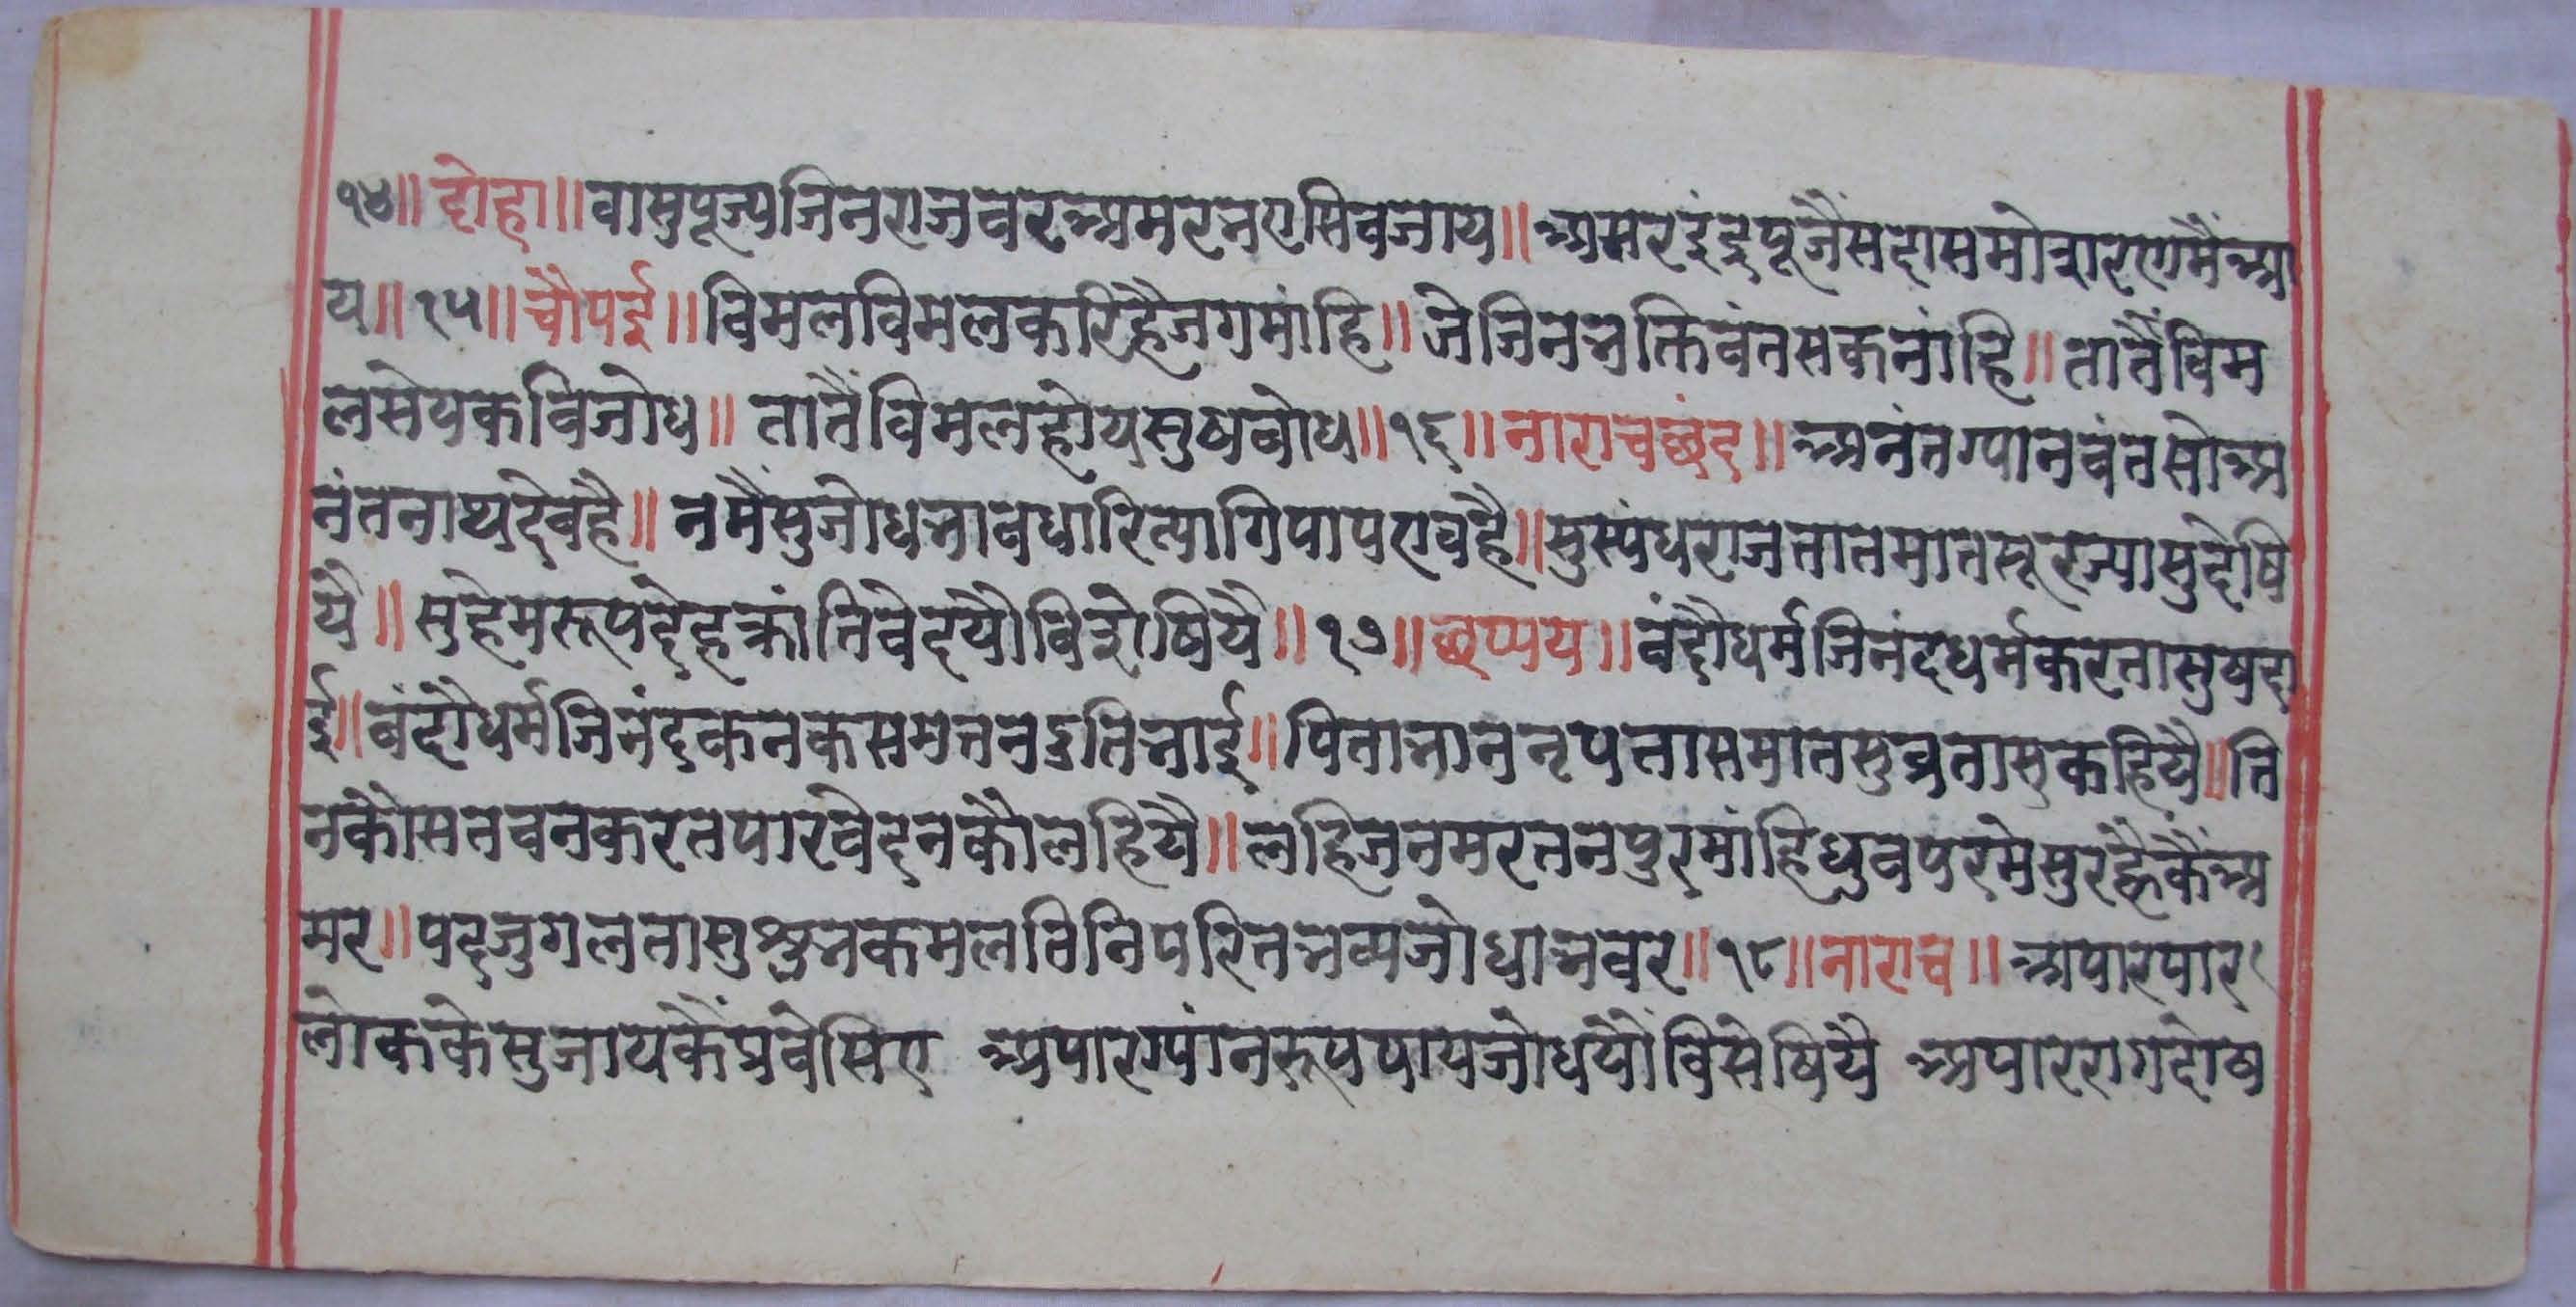 १४॥ दोहा॥ वासुपूज्यजिनराजवरअमरभएसिवजाय॥ अमरइंद्रपूजैंसदासमोसरणमैंआ
य॥१५॥ चौपई॥ विमलविमलकरिहैजगमांहि॥ जेजिनभक्तिवंतसकनांहि॥ तातैंविम
लसेयकविजोध॥ तातैंविमलहोयसुषबोध॥१६॥ नाराचछंद॥ अनंतग्यानवंतसोअ
नंतनाथदेवहै॥ नमैंसुजोधभावधारित्यागिपापएवहै॥ सुस्यंघराजतातमातसूरज्यासुदेषि
यै॥ सुहेमरूपदेहक्रांतिवेदयौविशेषियै॥१७॥ छप्पय॥ वंदौधर्मजिनंदधर्मकरतासुषदा
ई॥ वंदौधर्मजिनंदकनकसमतनदुतिभाई॥ पिताभाननृपतासमातसुव्रतासुकहियै॥ ति
नकौसतवनकरतपारवेदनकौलहियै॥ लहिजनमरतनपुरमांहिध्रुवपरमेसुरह्वैकैंअ
मर॥ पदजुगलतासुशुभकमलविनिपरितभव्यजोधाभवर॥१८॥ नाराच॥ अपारपार
लोककेसुजायकैंप्रवेसिए अपारग्यांनरूपपायजोधयौंविसेषियै अपाररागदोष